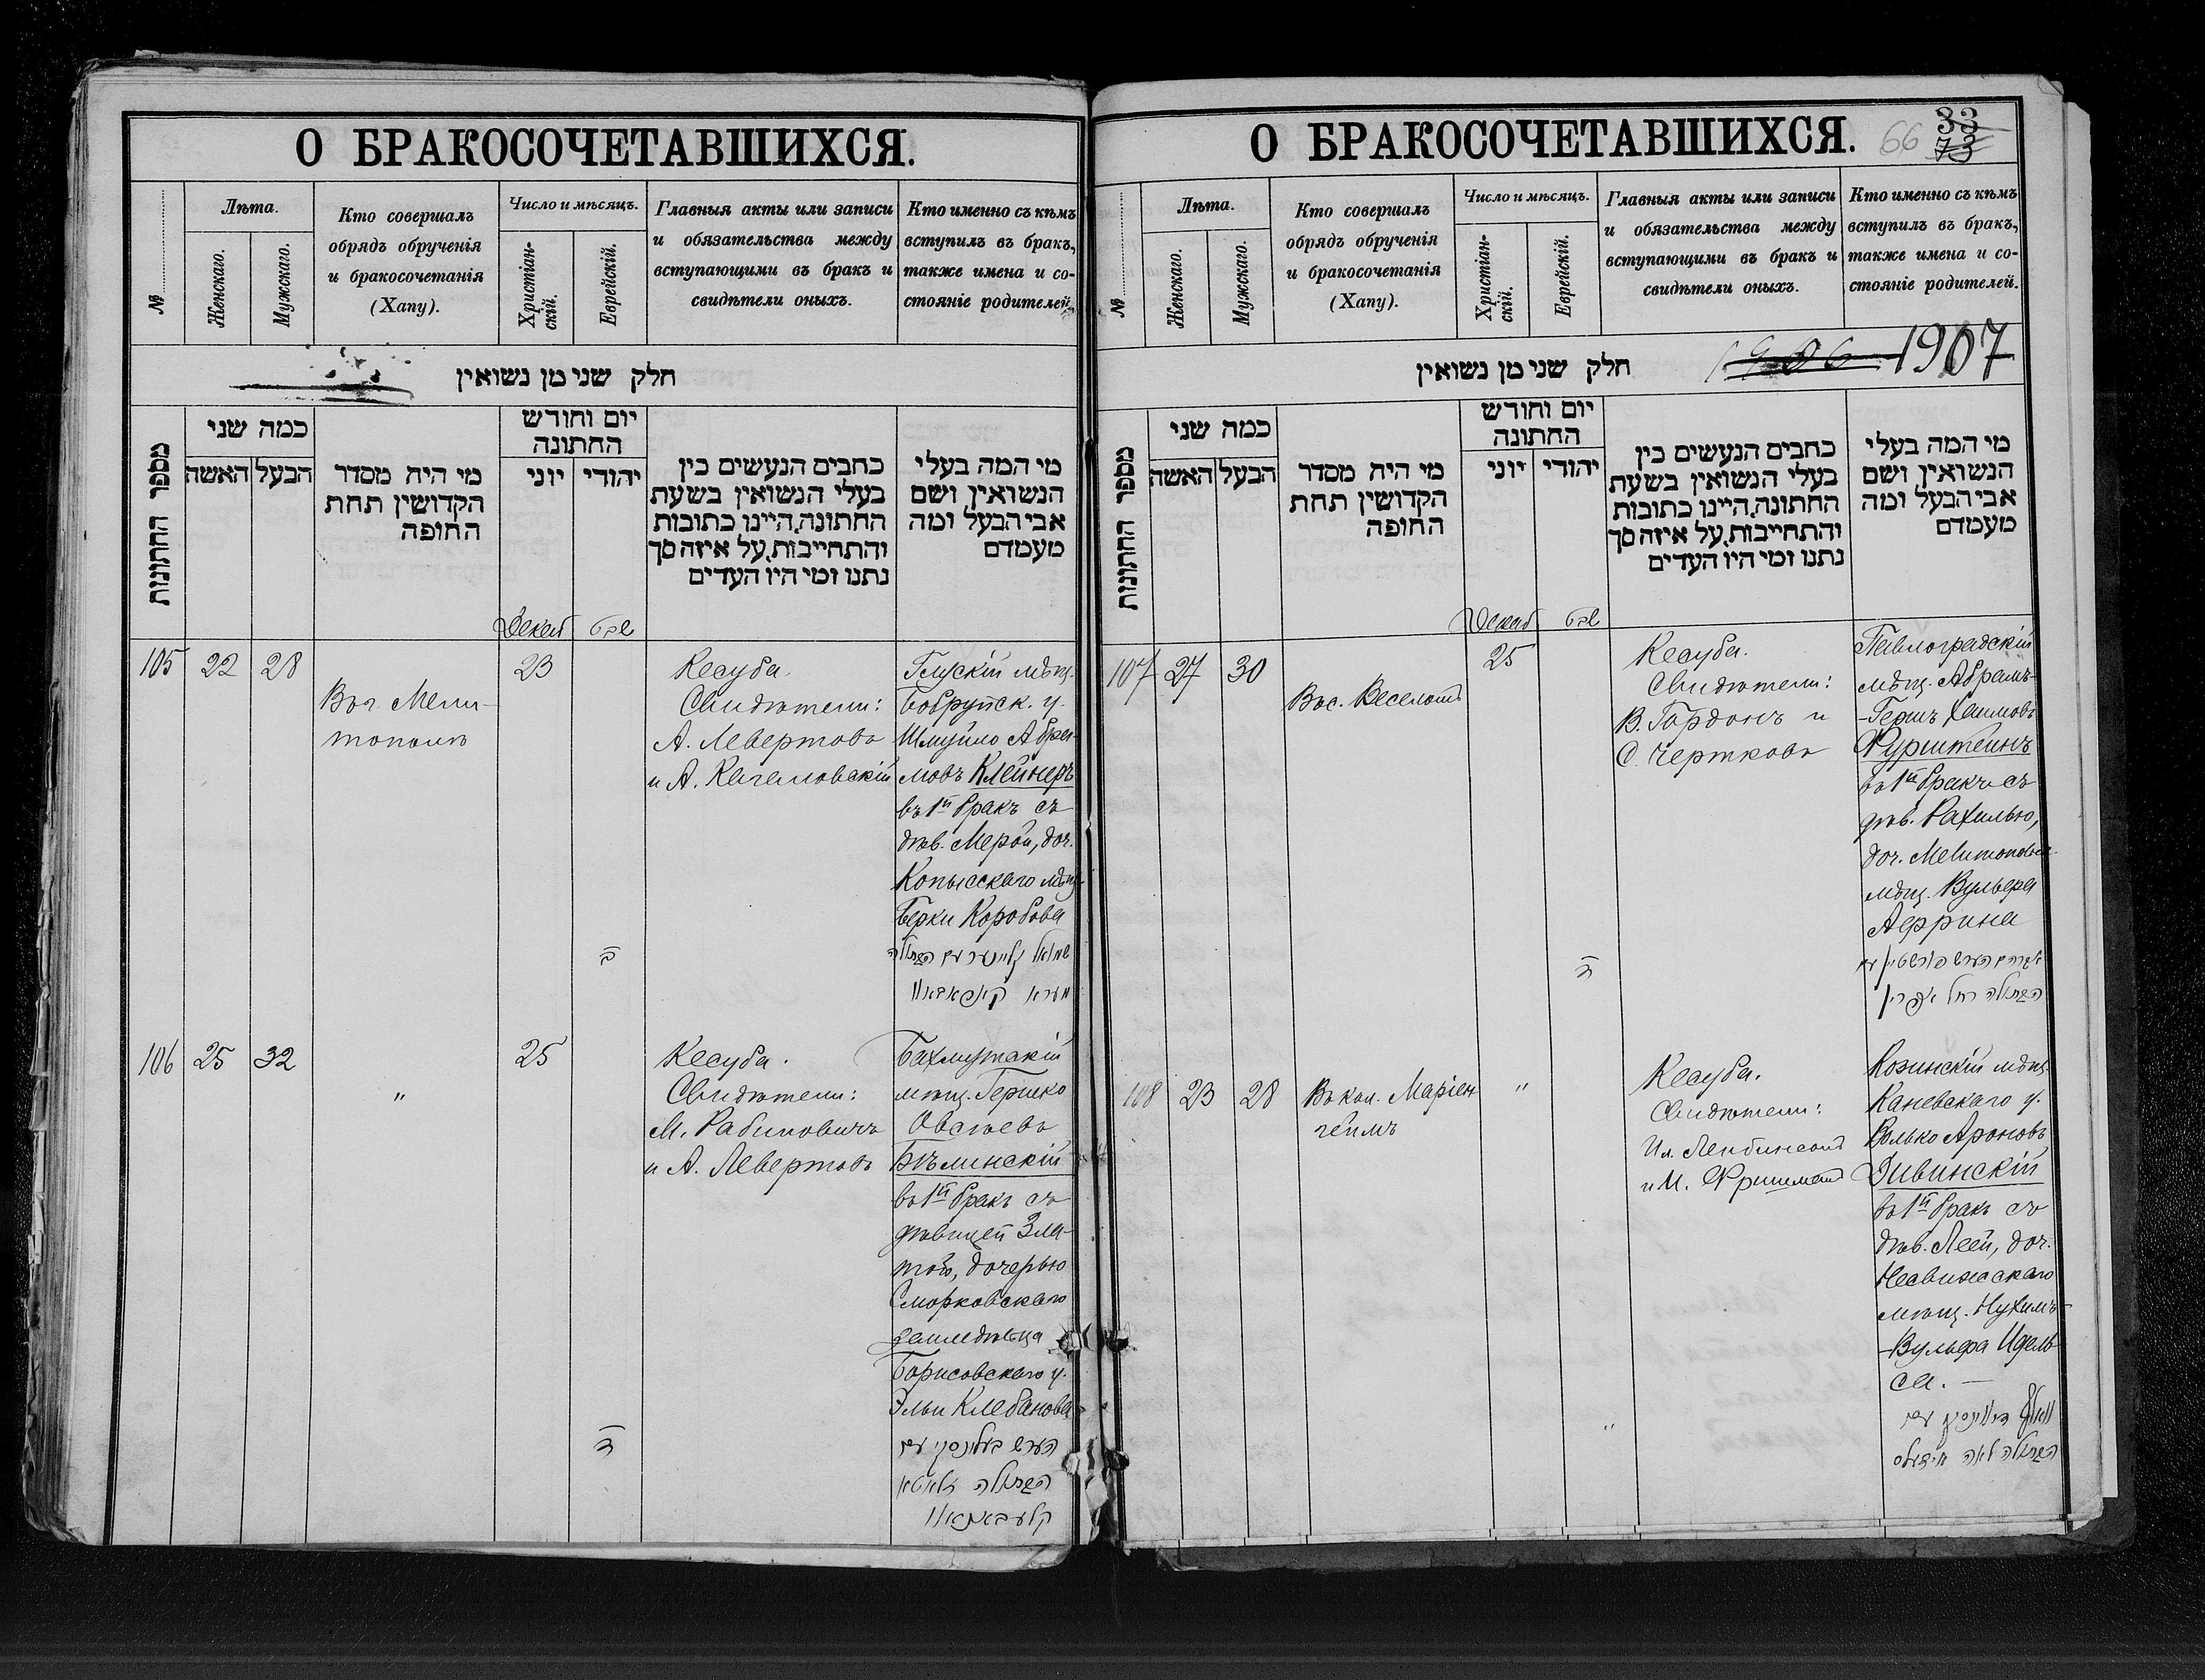 О БРАКОСОЧЕТАВШИХСЯ.
№
Лѣта.
Женскаго.
Мужскаго.
Кто совершалъ
обрядъ обрученія
и бракосочетанія
(Хапу).
Число и мѣсяцъ.
Христіан-
скій.
Еврейскій.
Главныя акты или записи
и обязательства между
вступающими въ бракъ и
свидѣтели оныхъ.
Кто именно съ кѣмъ
вступилъ въ бракъ,
также имена и со-
стояніе родителей.
חלק שני מן נשואין
מספר החתונות
כמה שני
האשה
הבעל
מי היה מסדר
הקדושין תחת
החופה
יום וחודש
החתונה
יוני
יהודי
כתבים הנעשים בין
בעלי הנשואין בשעת
החתונה, היינו כתובות
והתחייבות, על איזה סך
נתנו ומי היו העדים
מי המה בעלי
הנשואין ושם
אבי הבעל ומה
מעמדם
Декаб
טבת
105
22
28
Въ г. Мели-
тополѣ
23
ב
Кесуба.
Свидѣтели:
А. Левертовъ
и А. Кагаловскій
Глускій мѣщ.
Бобруйск. у.
Шмуйло Абра-
мовъ Клейнеръ
въ 1й бракъ съ
дѣв. Мерой, доч.
Копысскаго мѣщ.
Берки Коробова
שמואל קליינער עם הבתולה
מערא קאראבאוו
106
25
32
"
25
ד
Кесуба.
Свидѣтели:
М. Рабиновичъ
и А. Левертовъ
Бахмутскій
мѣщ. Гершко
Овсѣевъ
Бѣлинскій
въ 1й бракъ съ
дѣвицей Зла-
той, дочерью
Сморковскаго
землдѣльца
Борисовскаго у.
Эльи Клебанова
הערש בעלינסקי עם
הבתולה זלאטא
קלעבאנאוו
О БРАКОСОЧЕТАВШИХСЯ.
66
33
73
№
Лѣта.
Женскаго.
Мужскаго.
Кто совершалъ
обрядъ обрученія
и бракосочетанія
(Хапу).
Число и мѣсяцъ.
Христіан-
скій.
Еврейскій.
Главныя акты или записи
и обязательства между
вступающими въ бракъ и
свидѣтели оныхъ.
Кто именно съ кѣмъ
вступилъ въ бракъ,
также имена и со-
стояніе родителей.
חלק שני מן נשואין
1906 1907
מספר החתונות
כמה שני
האשה
הבעל
מי היה מסדר
הקדושין תחת
החופה
יום וחודש
החתונה
יוני
יהודי
כתבים הנעשים בין
בעלי הנשואין בשעת
החתונה, היינו כתובות
והתחייבות, על איזה סך
נתנו ומי היו העדים
מי המה בעלי
הנשואין ושם
אבי הבעל ומה
מעמדם
Декаб
טבת
107
27
30
Въ с. Веселомъ
25
ד
Кесуба.
Свидѣтели:
В. Гордонъ и
С. Чертковъ
Павлоградскій
мѣщ. Абрамъ-
-Гершъ Хаимовъ
Фурштейнъ
въ 1й бракъ съ
дѣв. Рахилью,
доч. Мелитопольск.
мѣщ. Вульфа
אברהם הערש פורשטיין עם
הבתולה רחל
108
23
28
Въ кол. Маріен-
геймъ
"
"
Кесуба.
Свидѣтели:
и И. Фришманъ
Козинскій мѣщ.
Каневскаго у.
Волько Ароновъ
Дивинскій
въ 1й бракъ съ
дѣв. Леей, доч.
Несвижскаго
мѣщ. Нухимъ-
-Вульфа Идель-
са. —
וואלף דיווינסקי עם
הבתולה לאה אידעלס